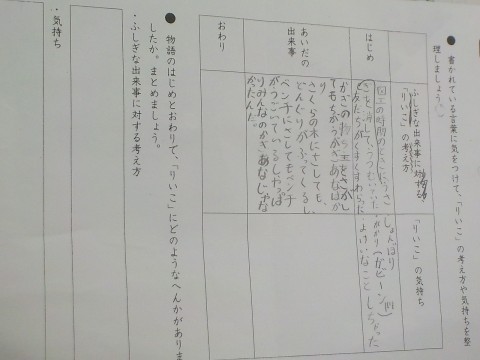 ● 書かれている言葉に気をつけて、「りいこ」の考え方や気持ちを整
理しましょう。
ふしぎな出来事に対する
「りいこ」の考え方
「りいこ」の気持ち
はじめ
図工の時間のとき、
友だちがくすくすわらった
しょんぼり
よけいなことしちゃった
あいだの
出来事
さくらの木にさしても、
どんぐりがふってくるし
ベンチにさしてもベンチ
がうごいているし、やっぱ
りみんなのかぎあなじゃな
かったんだ。
おわり
● 物語のはじめとおわりで、「りいこ」にどのようなへんかがありま
したか。まとめましょう。
・ふしぎな出来事に対する考え方
・気持ち